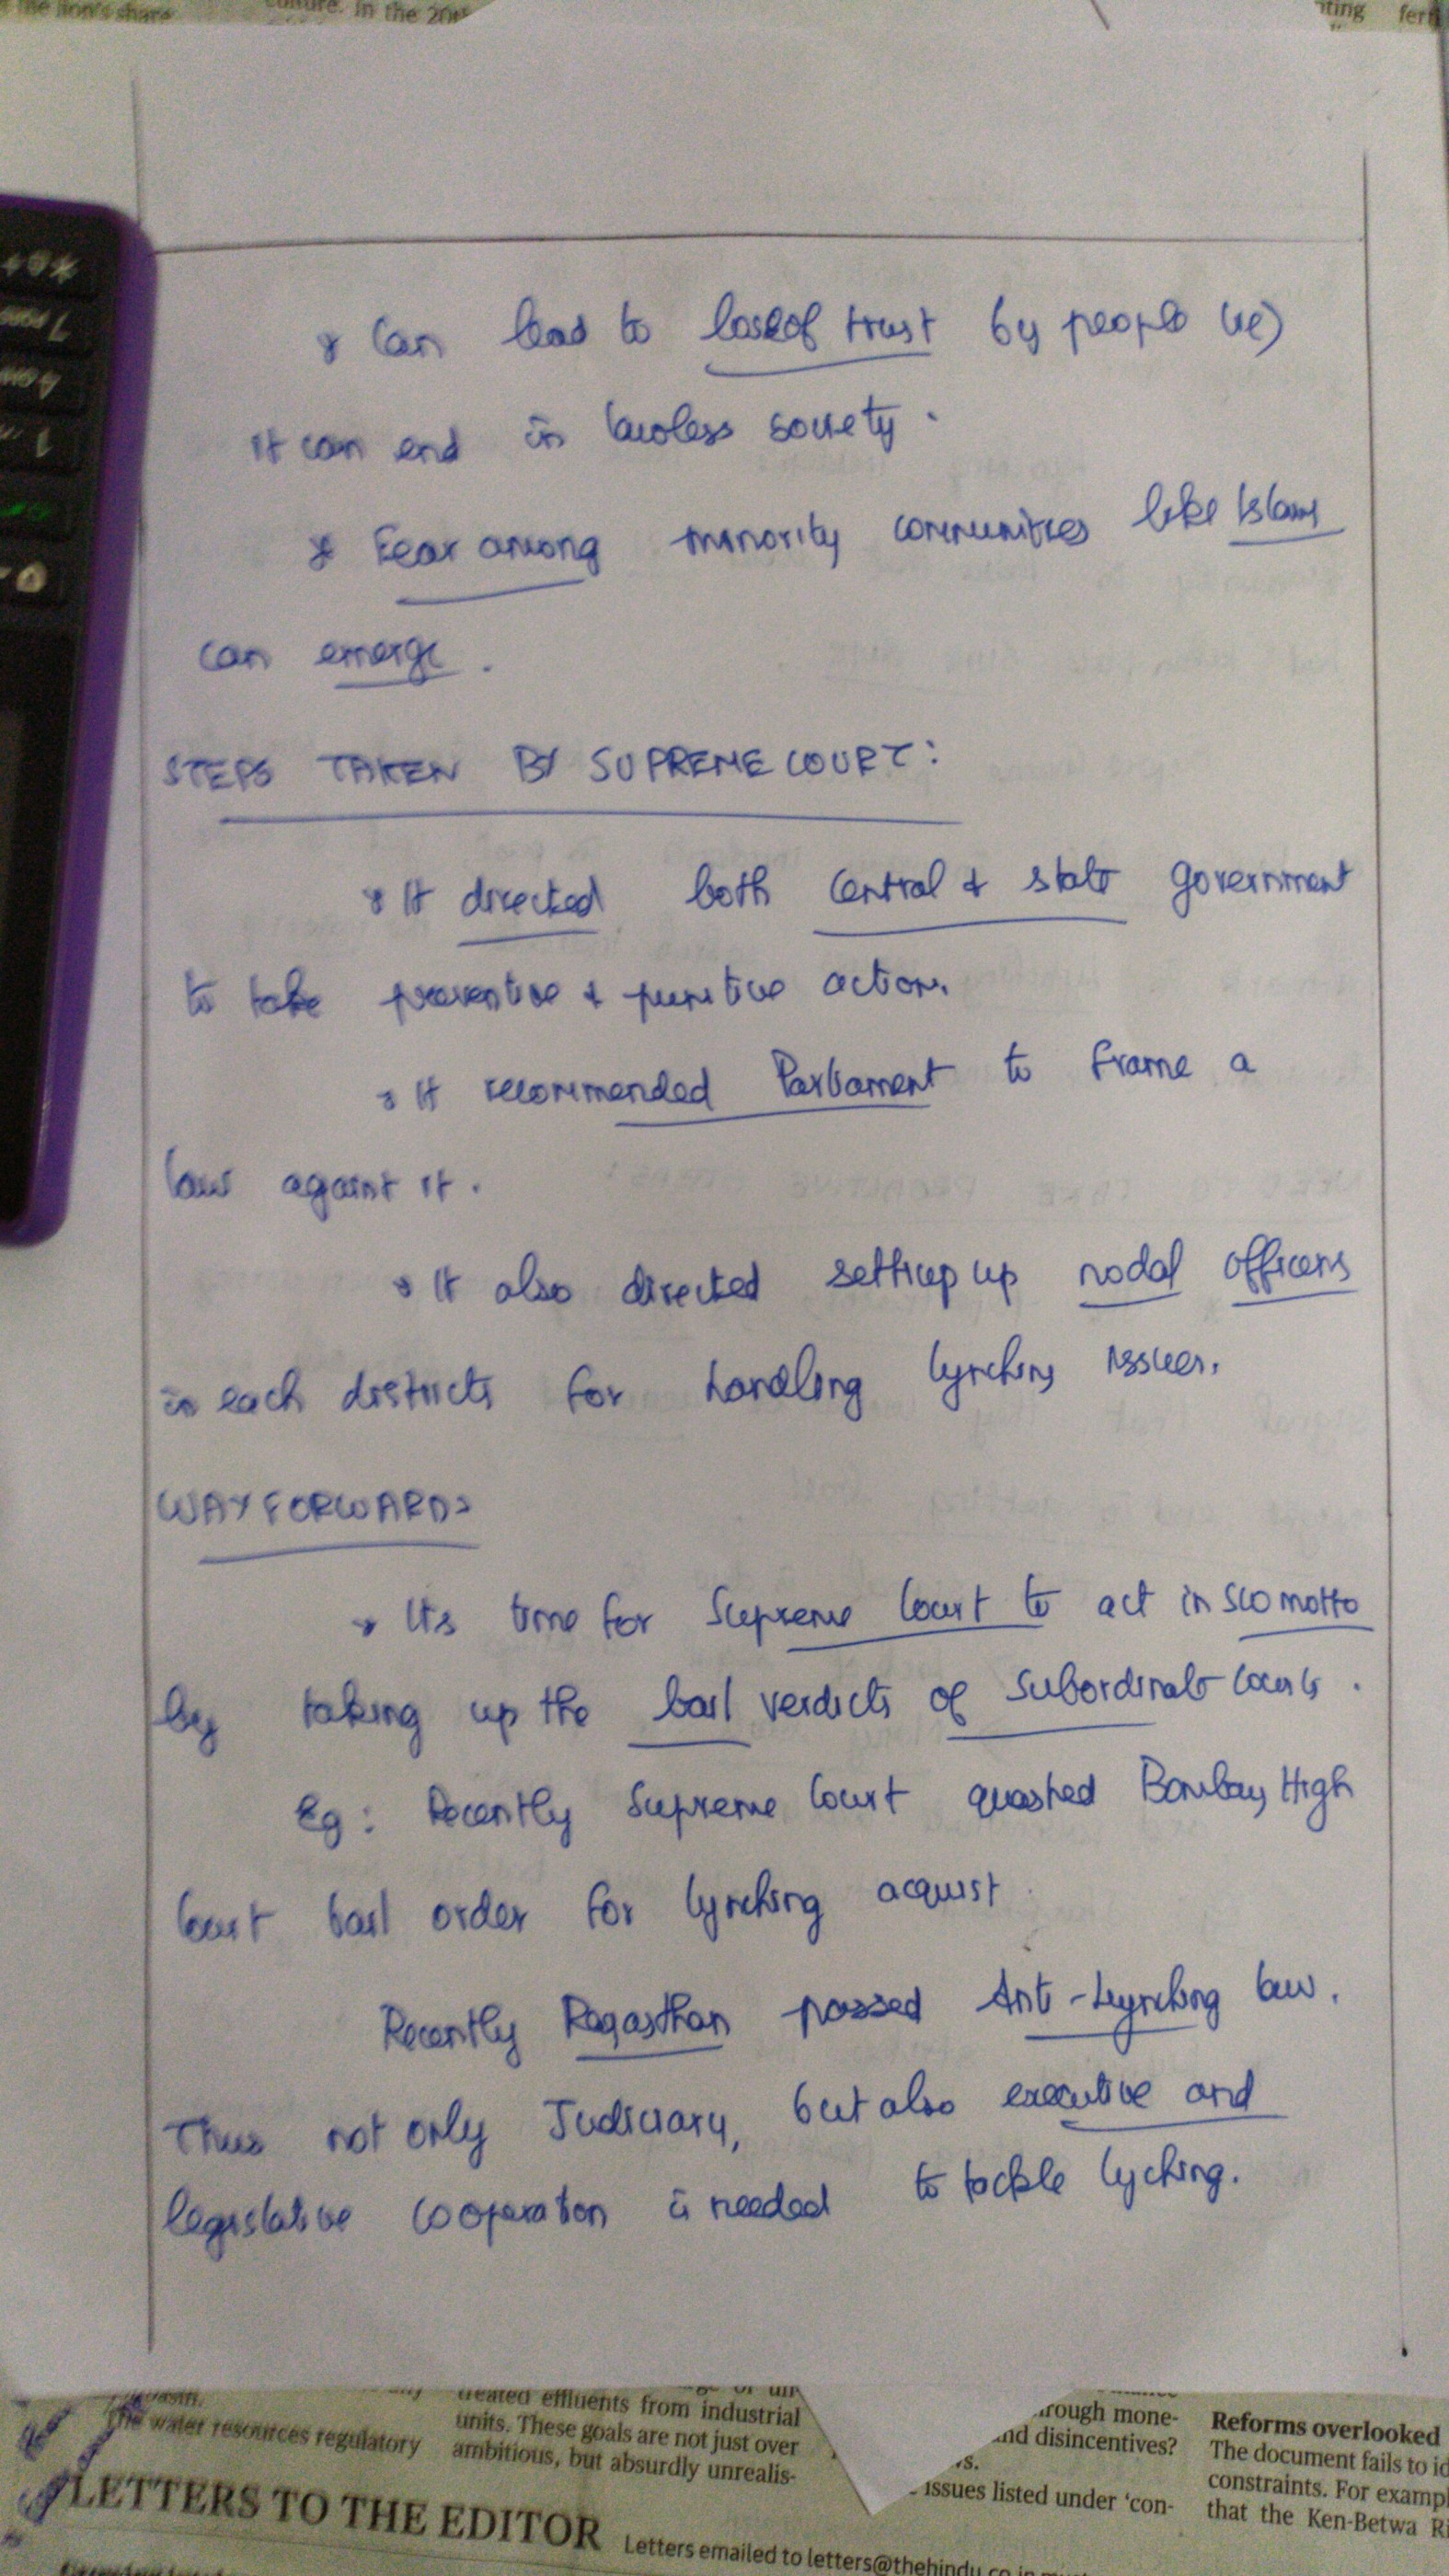 the lion's share
culture. In the 20th
iting fert
* Can lead to loseof trust by people (ie)
it can end in lawless society.
* Fear among minority communities like Islam
can emerge.
STEPS TAKEN BY SUPREME COURT:
* It directed both Central & state government
to take preventive & punitive action.
* It recommended Parliament to frame a
law against it.
* It also directed setting up nodal officers
in each districts for handling lynching issues.
WAY FORWARD:
* Its time for Supreme Court to act in suo motto
by taking up the bail verdicts of subordinate courts.
Eg: Recently Supreme Court quashed Bombay High
Court bail order for lynching acquist
Recently Ragasthan passed Anti-Lynching law.
Thus not only Judiciary, but also executive and
legislative cooperation is needed to tackle lyching.
treated effluents from industrial
the water resources regulatory
units. These goals are not just over
ambitious, but absurdly unrealis-
rough mone-
nd disincentives?
rs.
issues listed under 'con-
Reforms overlooked
The document fails to id
constraints. For exampl
that the Ken-Betwa Ri
LETTERS TO THE EDITOR
Letters emailed to letters@thehindu.co.in